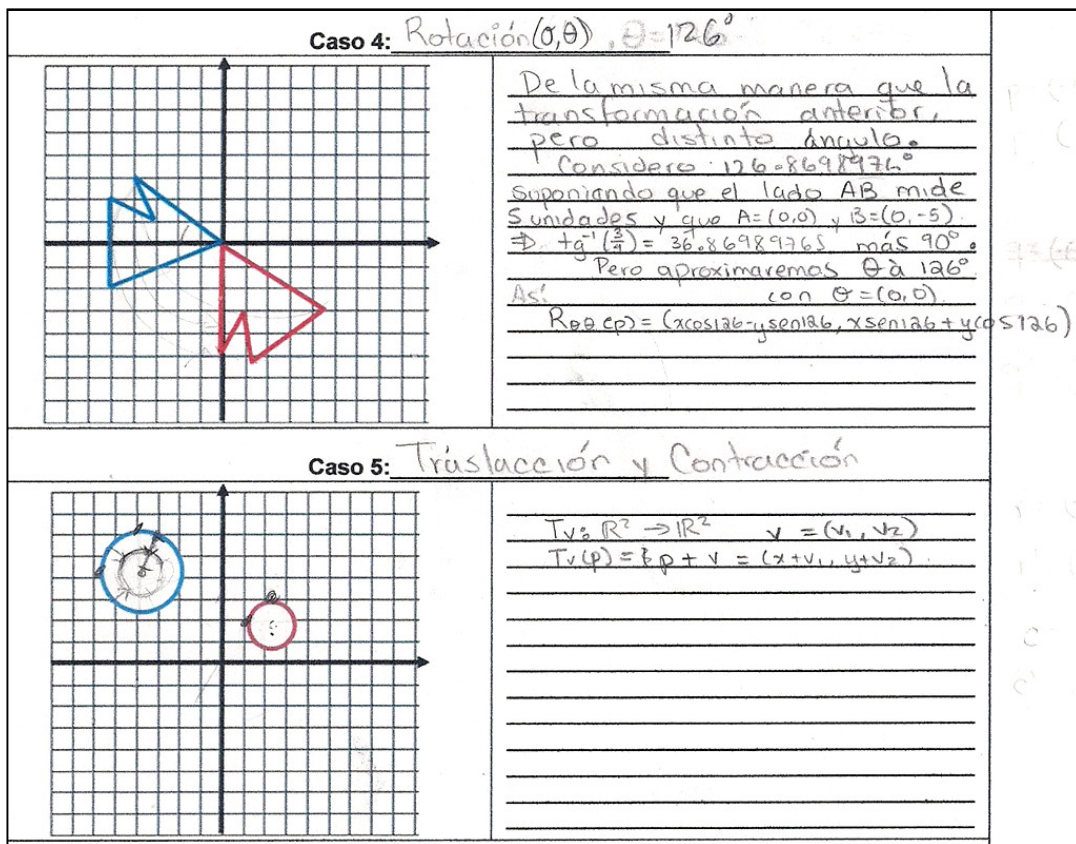 Caso 4: Rotación (σ,θ), θ=126°
De la misma manera que la
transformación anterior,
pero distinto ángulo.
Considero 126.8698976°
Suponiando que el lado AB mide
5 unidades y que A=(0,0) y B=(0,-5).
⇒ tg⁻¹(3/4)= 36.86989765 más 90°.
Pero aproximaremos θ à 126°
Así con σ=(0,0).
Rσθ(p)=(xcos126-ysen126, xsen126+ycos126)
Caso 5: Traslacción y Contracción
Tv: ℝ² → ℝ² v = (v₁, v₂)
Tv(p) = p + v = (x+v₁, y+v₂).